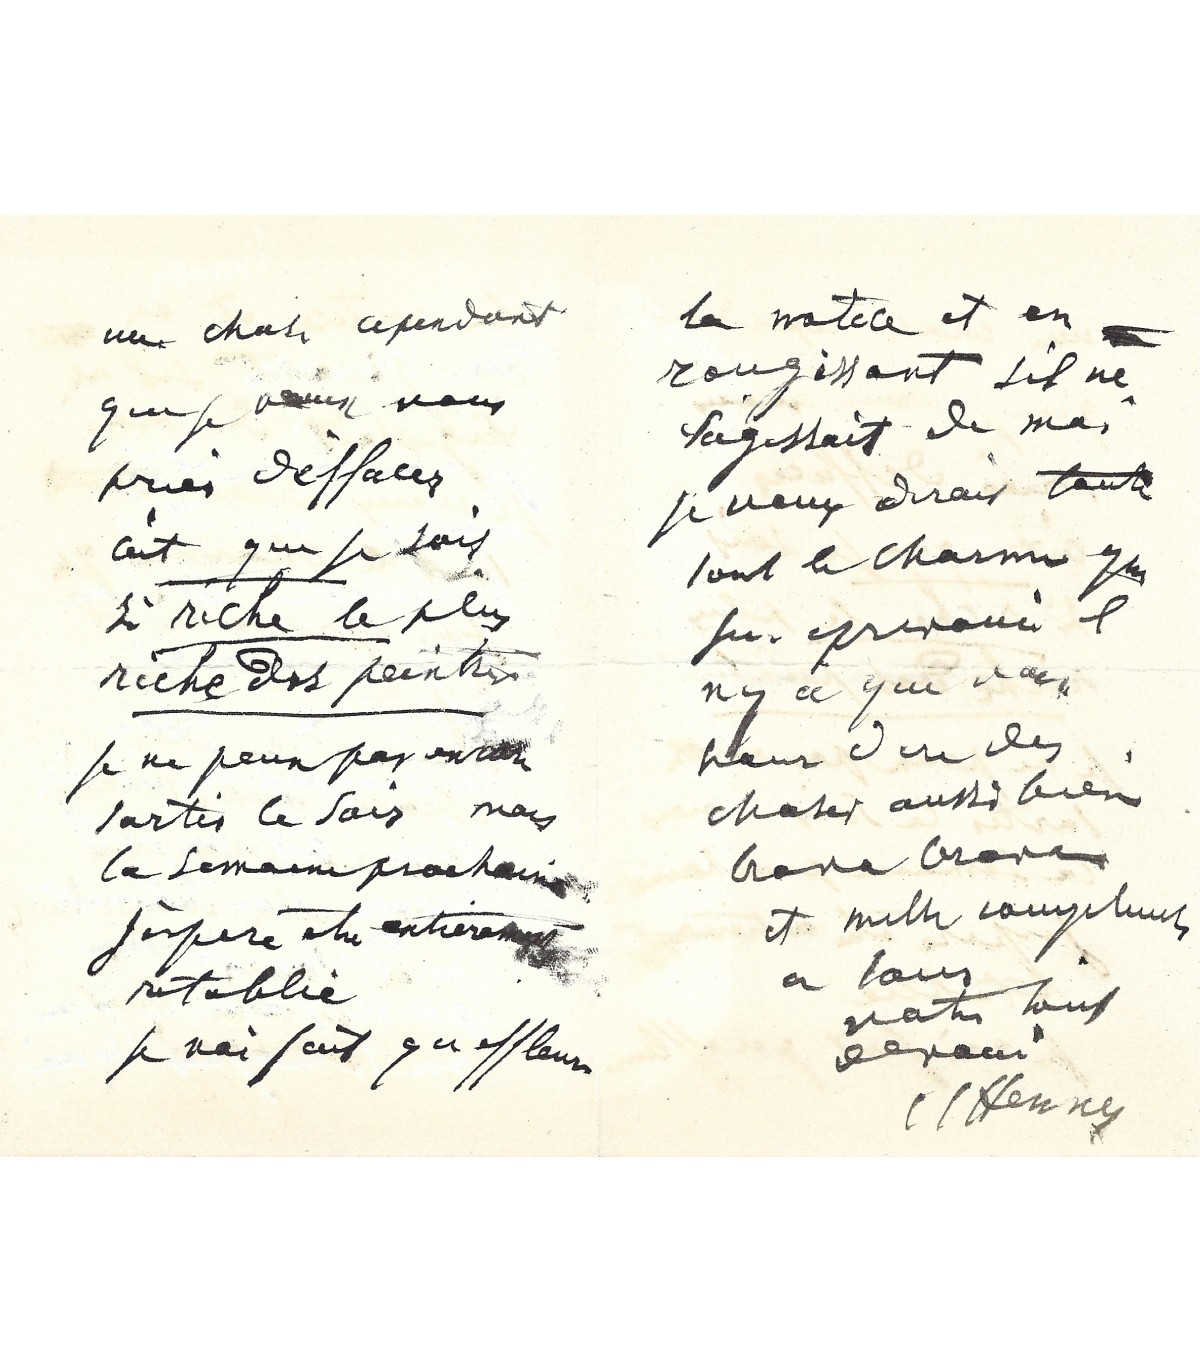 une chose cependant
que je veux vous
prier d'éffacer
c'est que je sois
si riche le plus
riche des peintres
je ne peux pas encore
sortir le soir mais
la semaine prochaine
j'espere etre entierement
retablie
je n'ai fait qu'effleurer
la notice et en
rougissant s'il ne
s'agissait de moi
je vous dirais toute
tout le charme que
j'ai eprouvé il
n'y a que vous
pour dire des
choses aussi bien
bravo bravo
et mille compliments
a tous
votre tout
devoué
JJHenner